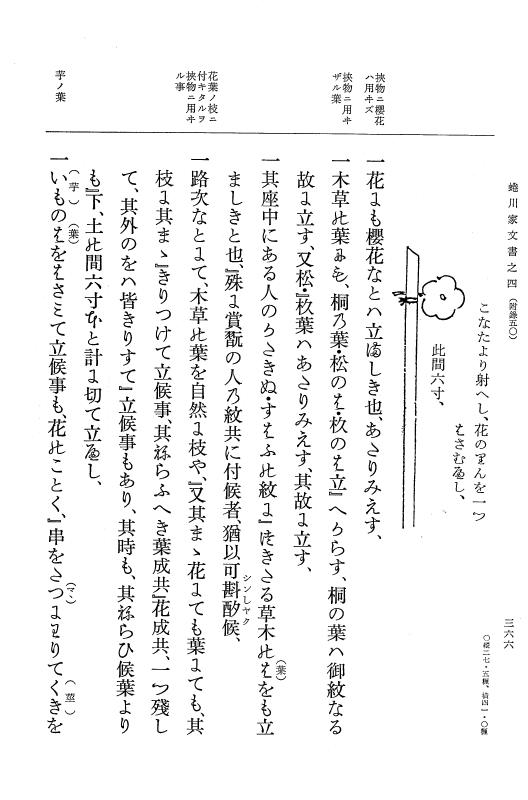 蜷川家文書之四（附錄五〇）
三六六
〇縱二七・五糎、橫四一・〇糎
こなたより射へし、花のりんを一つ
はさむへし、
此間六寸、
挾物ニ櫻花
ハ用ヰズ
一花にも櫻花なとハ立ましき也、あたりみえす、
挾物ニ用ヰ
ザル葉
一木草の葉にも、桐乃葉・松のは・杦のは立』へからす、桐の葉ハ御紋なる
故に立す、又松・』杦葉ハあたりみえす、其故に立す、
一其座中にある人のかたきぬ・すはふの紋に』付きたる草木のは（葉）をも立
ましきと也、』殊に賞翫の人乃紋共に付候者、猶以可斟酌（シンしヤク）候、
花葉ノ枝ニ
付キタルヲ
挾物ニ用ヰ
ル事
一路次なとにて、木草の葉を自然に枝や、』又其まゝ花にても葉にても、其
枝に其まゝ』きりつけて立候事、其ねらふへき葉成共』花成共、一つ殘し
て、其外のをハ皆きりすて』立候事もあり、其時も、其ねらひ候葉より
も』下、土の間六寸ほと計に切て立へし、
芋ノ葉
一いも（芋）のは（葉）をはさミて立候事も、花のことく、』串をたつ（マヽ）にわりてくき（莖）を